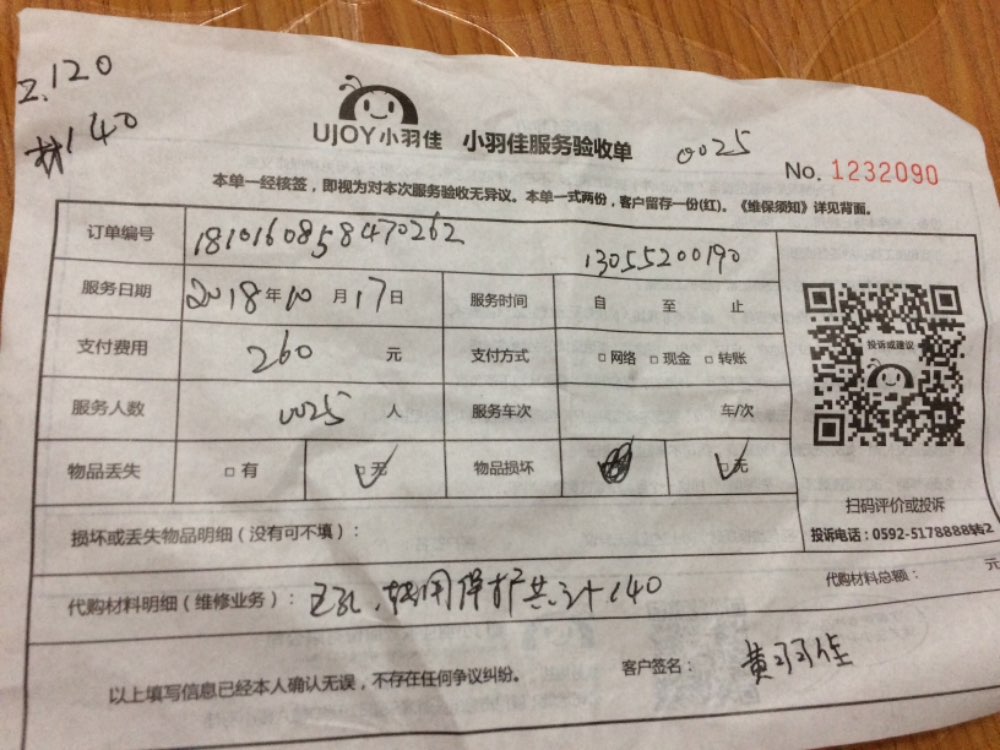 工120
材140
UJOY小羽佳 小羽佳服务验收单 0025
No. 1232090
本单一经核签，即视为对本次服务验收无异议。本单一式两份，客户留存一份(红)。《维保须知》详见背面。
订单编号 1810160858470262 13055200190
服务日期 2018年10月17日 服务时间 自 至 止
支付费用 260 元 支付方式 □网络 □现金 □转账
投诉或建议
服务人数 0025 人 服务车次 车/次
物品丢失 □有 □无 物品损坏 □无
扫码评价或投诉
损坏或丢失物品明细（没有可不填）：
投诉电话：0592-5178888转2
代购材料明细（维修业务）： 共计140
代购材料总额： 元
以上填写信息已经本人确认无误，不存在任何争议纠纷。 客户签名： 黄